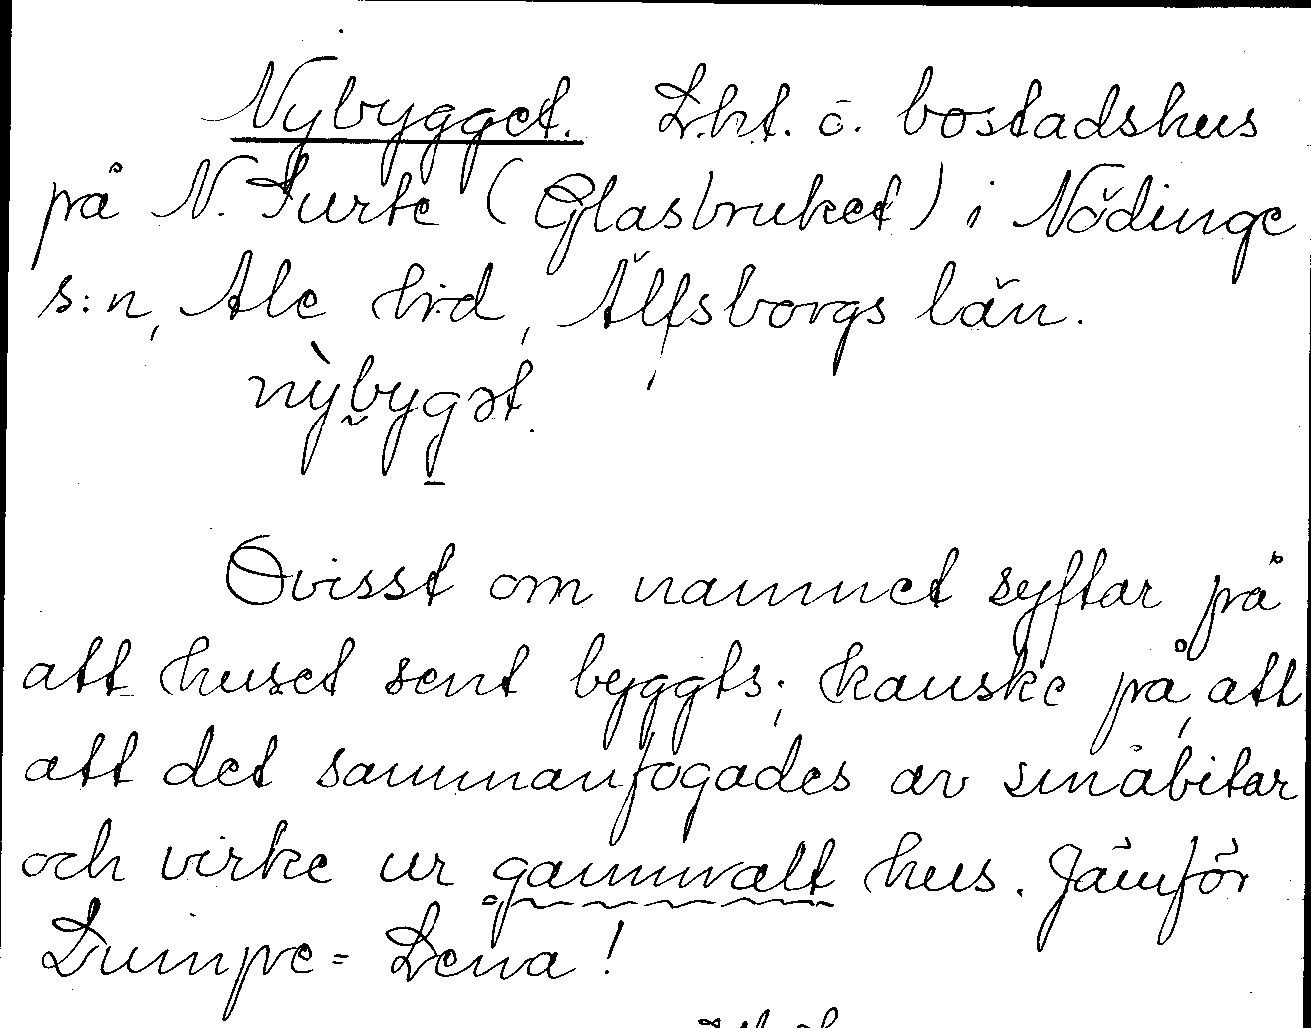 Nybygget. Lht. o. bostadshus
på N. Surte (Glasbruket) i Nödinge
s:n, Ale h:d, Älfsborgs län.
nỳbygət.
Ovisst om namnet syftar på
att huset sent byggts; kanske på, att
att det sammanfogades av småbitar
och virke ur gammalt hus. Jämför
Lumpe-Lena!